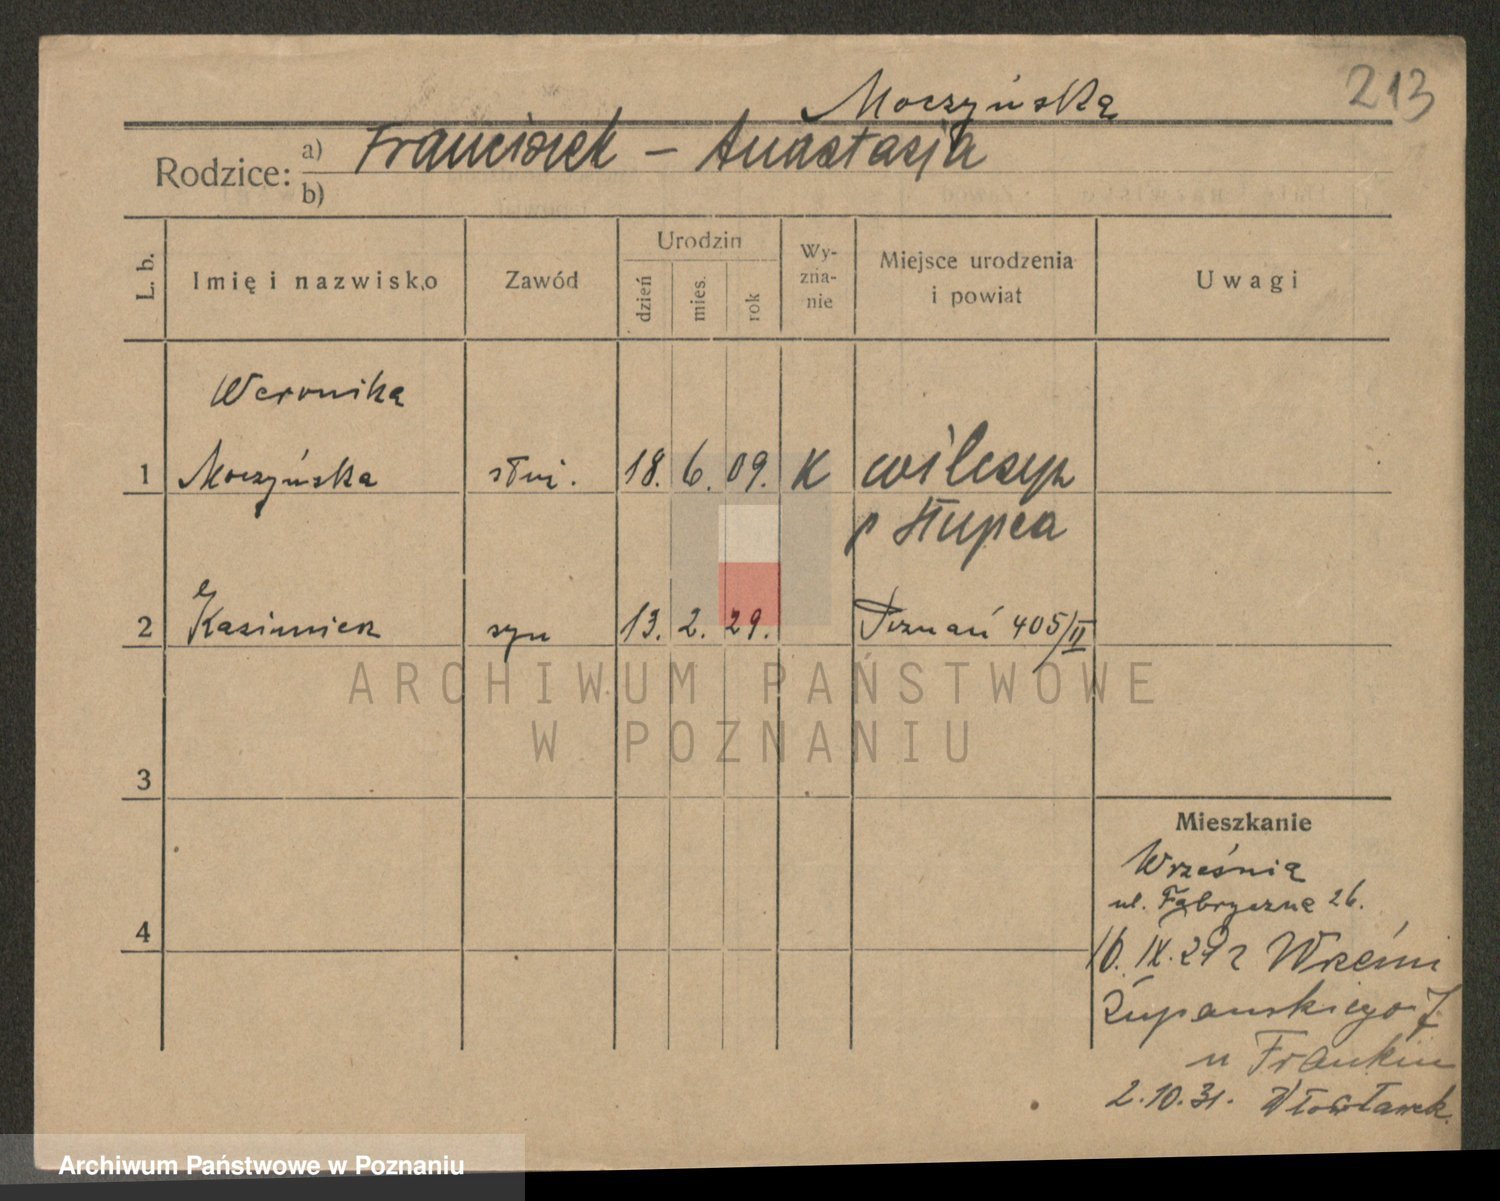 213
Moczyńska
Rodzice: a) Franciszek - Anastazja
b)
L. b.
Imię i nazwisko
Zawód
Urodzin
dzień
mies.
rok
Wy-
zna-
nie
Miejsce urodzenia
i powiat
Uwagi
Weronika
1 Moczyńska służ. 18. 6. 09. K Wilczyn
p Słupca
2 Kazimierz syn 13. 2. 29. Poznań 405/II
ARCHIWUM PAŃSTWOWE
W POZNANIU
3
Mieszkanie
Września
ul. Fabryczna 26.
4
16. IX. 29 z Wrześni
Żupanskiego 7
u Frankiu
2.10.31. Włocławek.
Archiwum Państwowe w Poznaniu